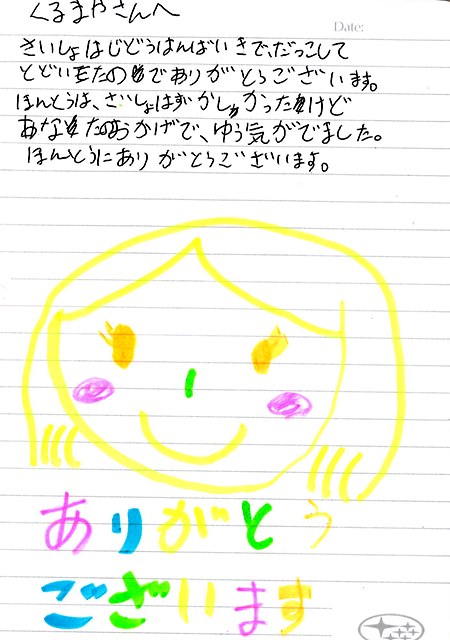 くるまやさんへ
Date:
さいしょはじどうはんばいきで、だっこして
とどいたのでありがとうございます。
ほんとうは、さいしょはずかしかったけど
あなたのおかげで、ゆう気がでました。
ほんとうにありがとうございます。
ありがとう
ございます